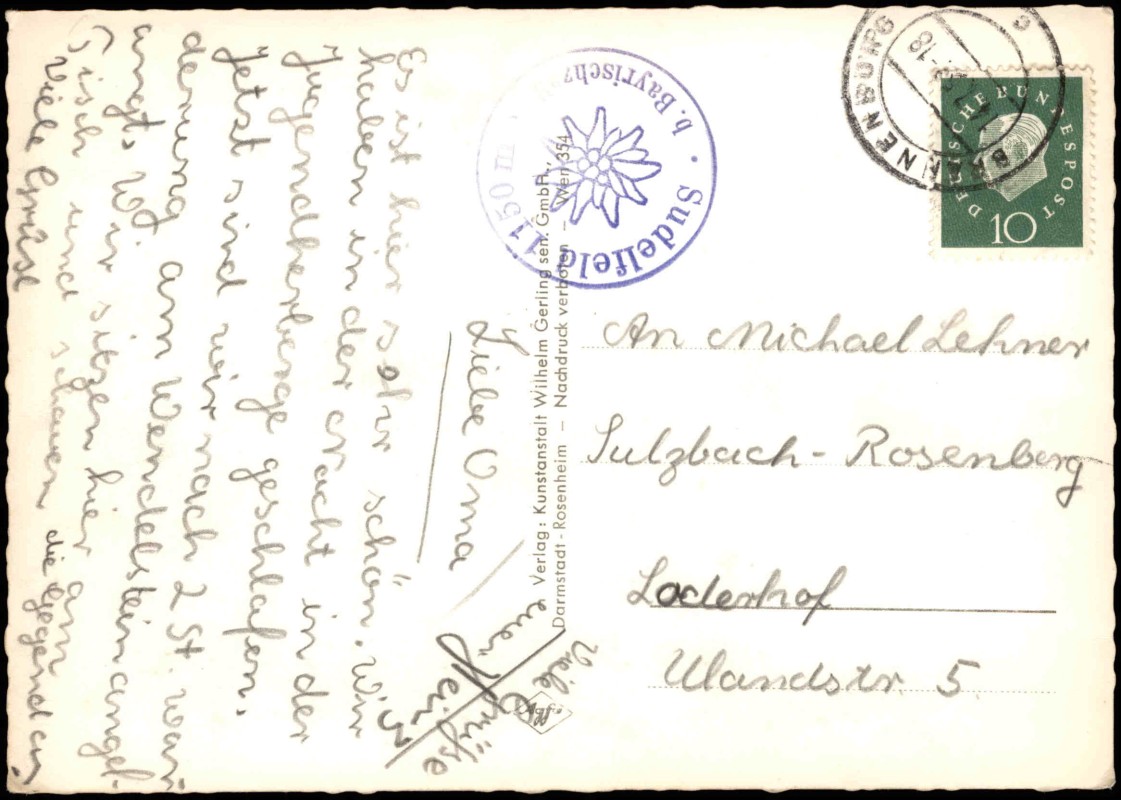 Liebe Oma
Es ist hier sehr schön. Wir
haben in der Nacht in der
Jugendherberge geschlafen.
Jetzt sind wir nach 2 St. wan
derung am Wendelstein angel
angt. Wir sitzen hier am
Tisch und schauen die Gegend an
Viele Grüse
Viele Grüse
euer Heini
Verlag: Kunstanstalt Wilhelm Gerling sen. GmbH.,
Darmstadt-Rosenheim — Nachdruck verboten — Wen 354
b. Bayrisch
Sudelfeld
1150 m
DEUTSCHE BUNDESPOST
10
An Michael Lehner
Sulzbach-Rosenberg
Loderhof
Ulandstr. 5